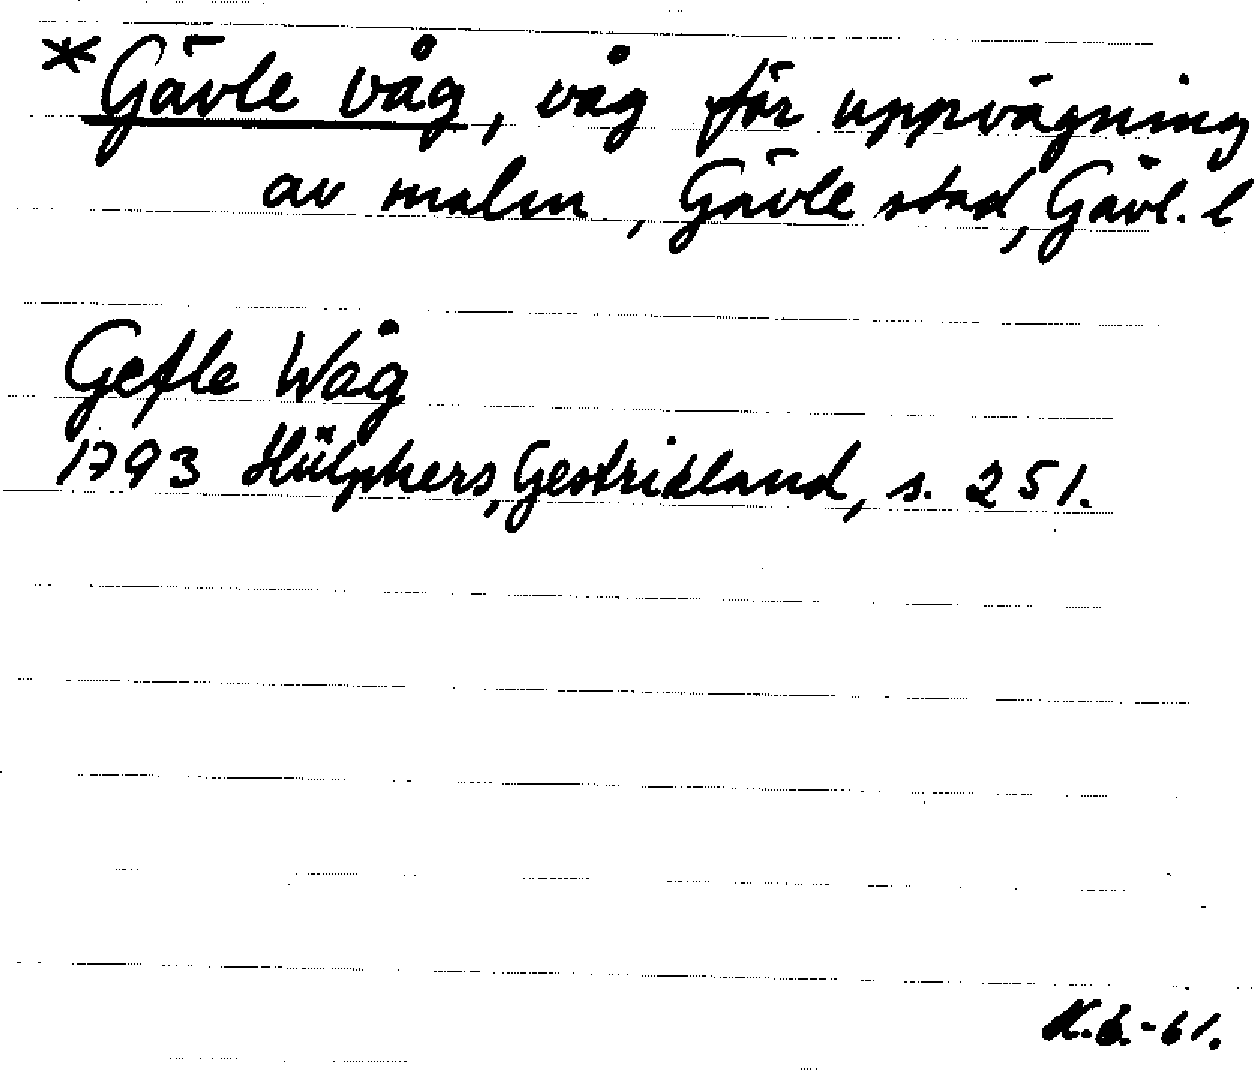 * Gävle våg, våg för uppvägning
av malm, Gävle stad, Gävl. l
Gefle Wåg
1793 Hülphers, Gestrikland, s. 251.
-61.